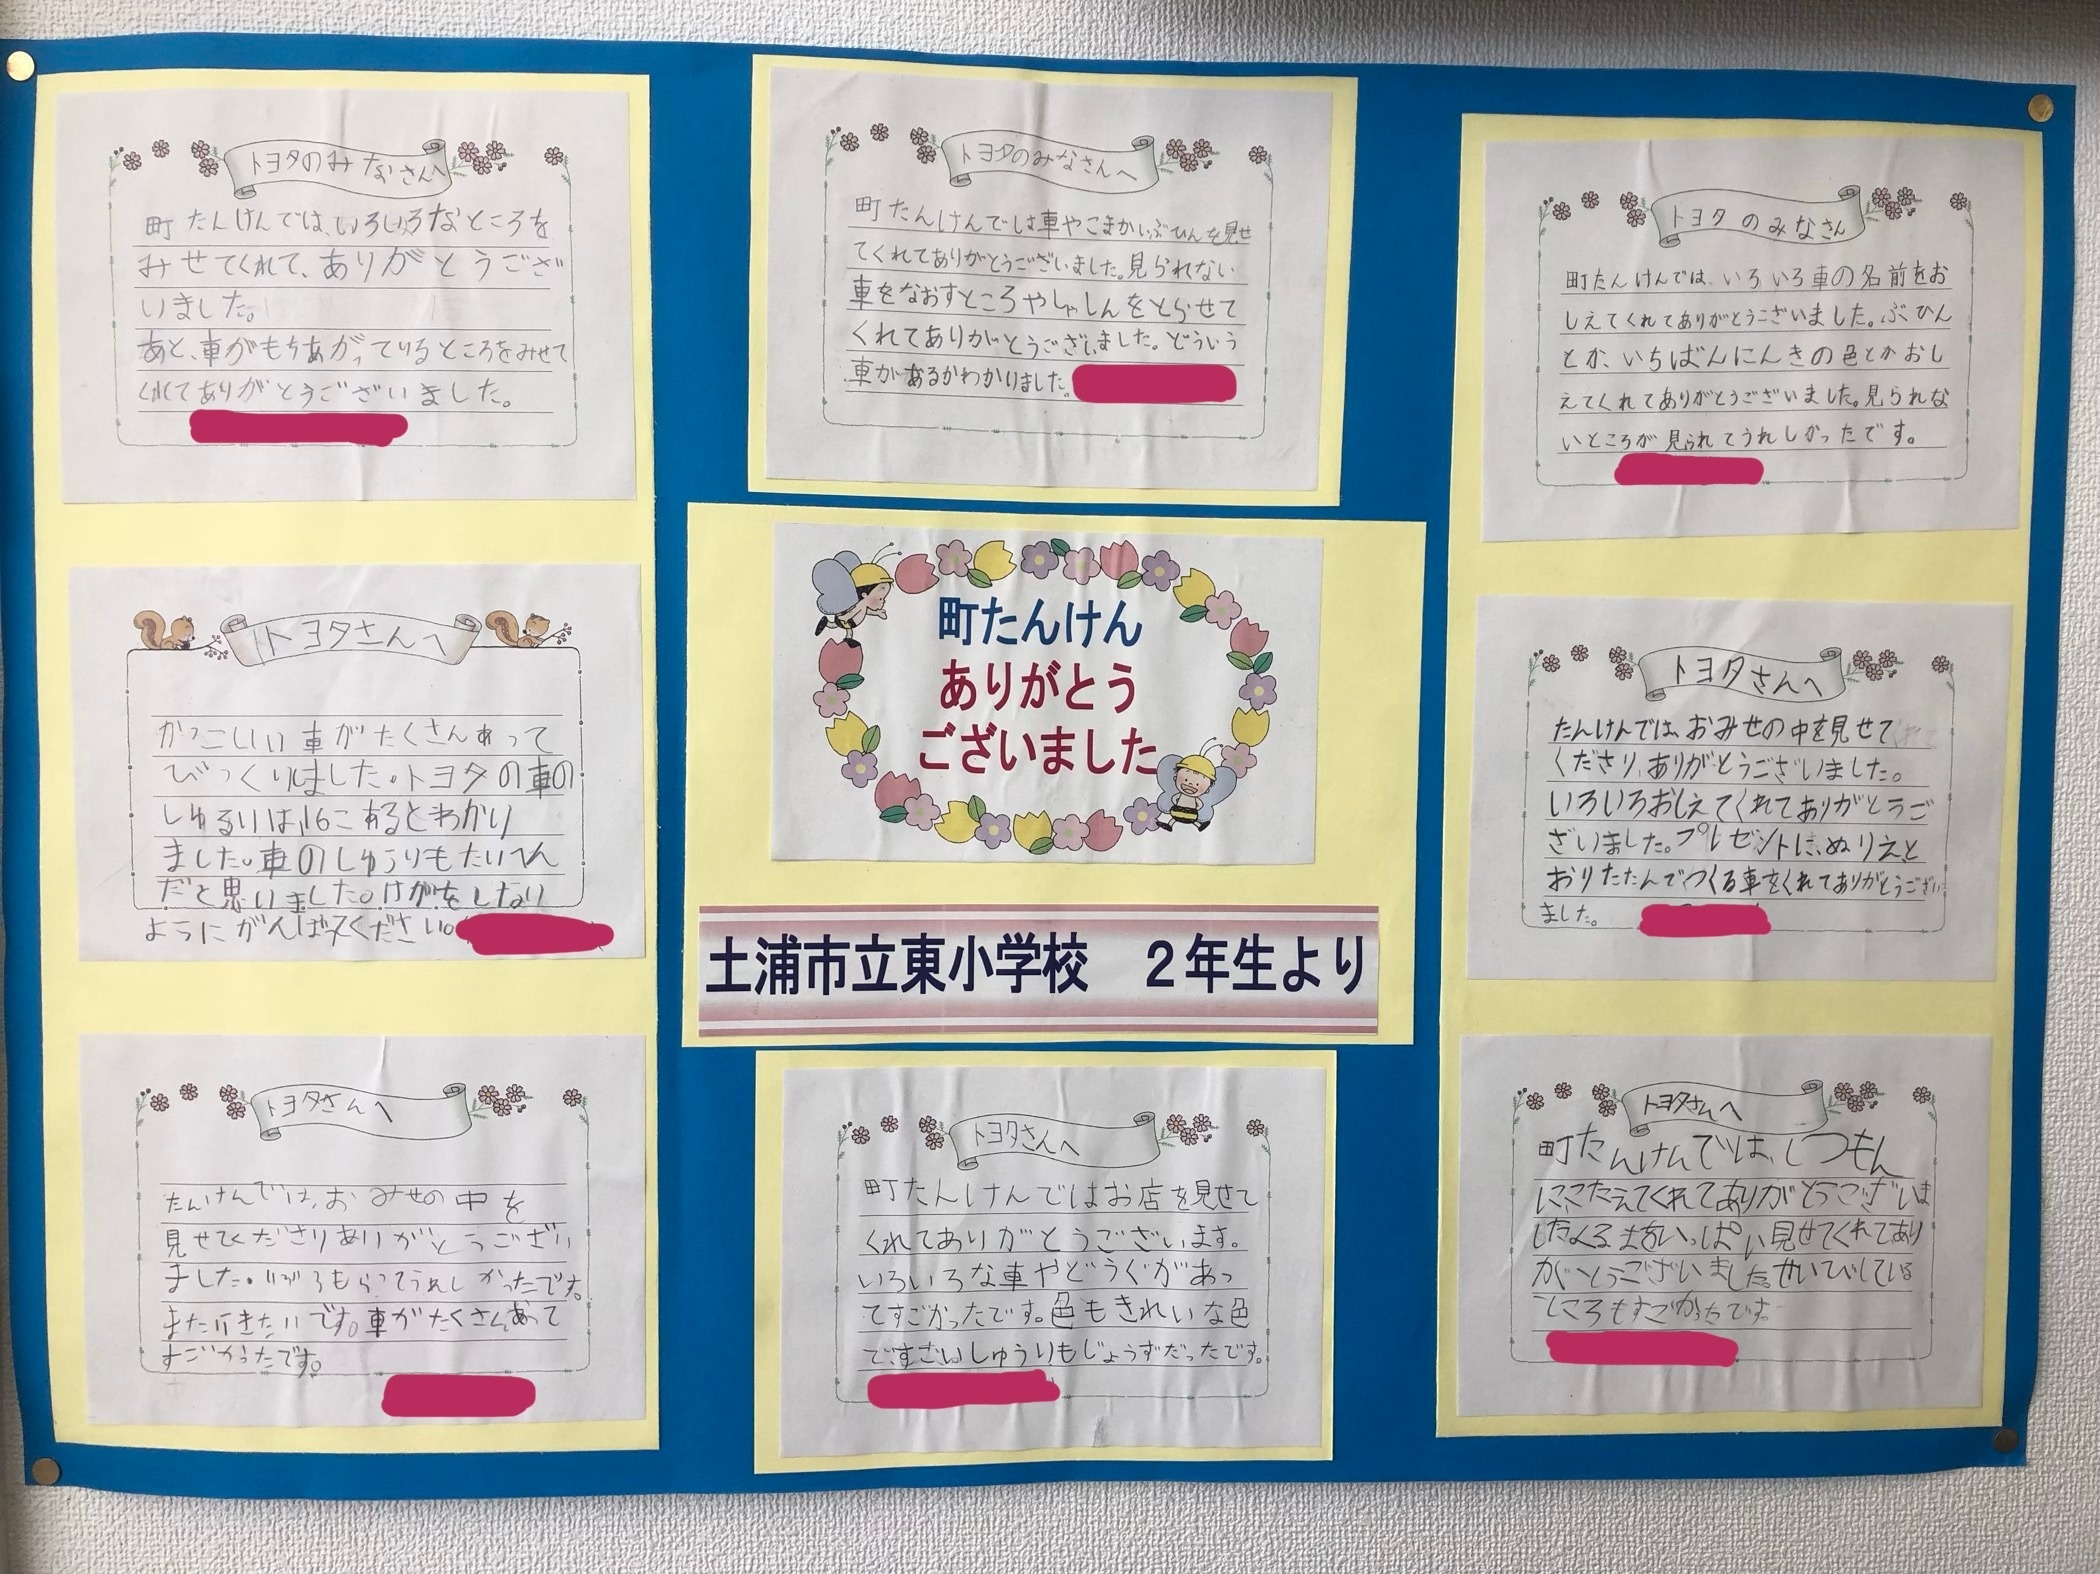 トヨタのみなさんへ
町たんけんでは、いろいろなところを
みせてくれて、ありがとうござ
いました。
あと、車がもちあがっているところをみせて
くれてありがとうございました。
トヨタさんへ
かっこいい車がたくさんあって
びっくりしました。トヨタの車の
しゅるいは、16こあるとわかり
ました。車のしゅうりもたいへん
だと思いました。けがをしない
ようにがんばってください。
トヨタさんへ
たんけんでは、おみせの中を
見せてくださりありがとうござい
ました。いろいろもらってうれしかったです。
また行きたいです。車がたくさんあって
すごかったです。
トヨタのみなさんへ
町たんけんでは車やこまかいぶひんを見せ
てくれてありがとうございました。見られない
車をなおすところやしゃしんをとらせて
くれてありがとうございました。どういう
車があるかわかりました。
町たんけん
ありがとう
ございました
土浦市立東小学校 2年生より
トヨタさんへ
町たんけんではお店を見せて
くれてありがとうございます。
いろいろな車やどうぐがあっ
てすごかったです。色もきれいな色
です
しゅうりもじょうずだったです。
トヨタのみなさん
町たんけんでは、いろいろ車の名前をお
しえてくれてありがとうございました。ぶひん
とか、いちばんにんきの色とかおし
えてくれてありがとうございました。見られな
いところが見られてうれしかったです。
トヨタさんへ
たんけんでは、おみせの中を見せて
くださり、ありがとうございました。
いろいろおしえてくれてありがとうご
ざいました。プレゼントに、ぬりえと
おりたたんでつくる車をくれてありがとうござい
ました。
トヨタさんへ
町たんけんでは、しつもん
にこたえてくれてありがとうございま
した。くるまをいっぱい見せてくれてあり
がとうございました。せいびしている
ところもすごかったです。